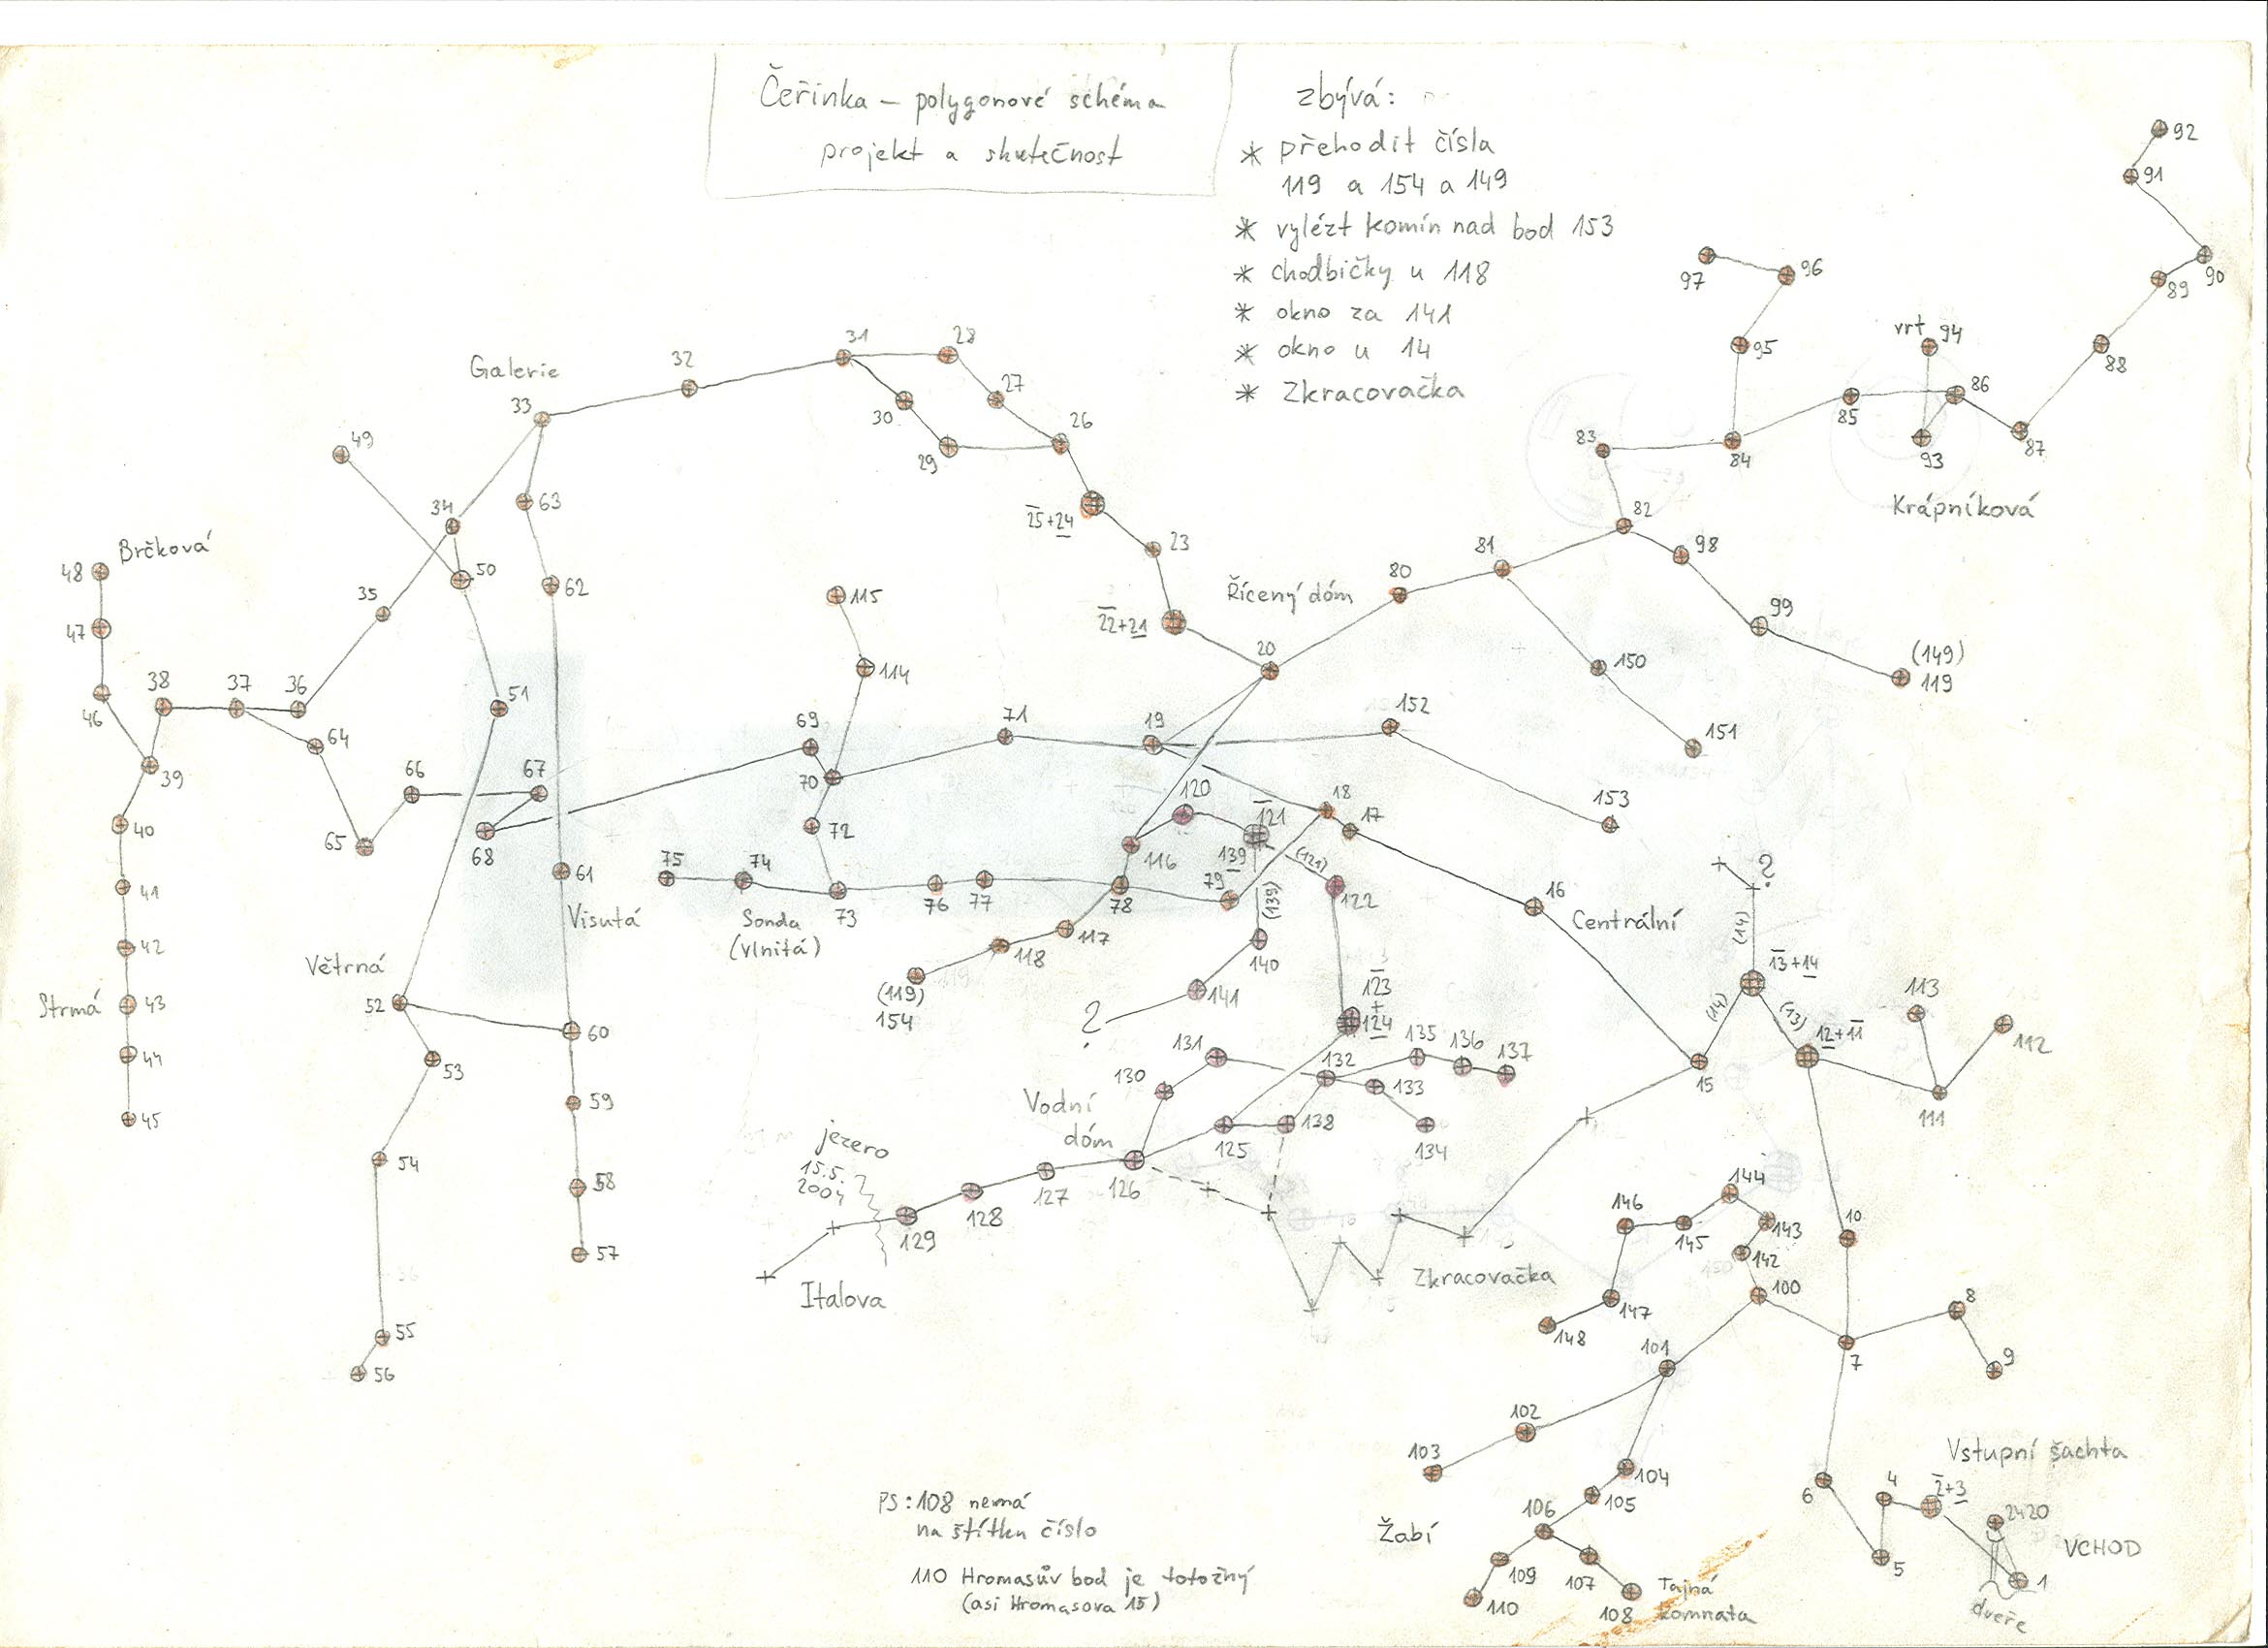 Čeřinka – polygonové schéma
projekt a skutečnost
zbývá:
* přehodit čísla
119 a 154 a 149
* vylézt komín nad bod 153
* chodbičky u 118
* okno za 141
* okno u 14
* Zkracovačka
92
91
90
89
88
87
97
96
95
vrt 94
93
86
85
84
83
Krápníková
82
98
99
(149)
119
81
80
150
151
Řícený dóm
20
22+21
23
25+24
26
27
28
29
30
31
32
Galerie
33
34
35
36
37
38
49
50
51
63
62
61
60
59
58
57
Brčková
48
47
46
39
40
41
42
43
44
45
Strmá
64
65
66
67
68
Visutá
Větrná
52
53
54
55
56
115
114
69
70
71
72
19
152
153
18
17
16
Centrální
120
121
139
(121)
122
(139)
140
141
?
116
79
78
77
76
73
74
75
Sonda
(vlnitá)
117
118
(119)
154
123
+
124
131
130
132
135
136
137
133
134
138
125
Vodní
dóm
126
127
128
129
jezero
15.5.
2004
Italova
Zkracovačka
?
(14)
13+14
(14)
(13)
12+11
15
113
112
111
10
144
143
142
145
146
147
148
100
101
102
103
104
105
106
107
108
109
110
Žabí
Tajná
komnata
7
8
9
6
5
4
2+3
Vstupní šachta
2420
VCHOD
1
dveře
PS: 108 nemá
na štítku číslo
110 Hromasův bod je totožný
(asi Hromasova 15)